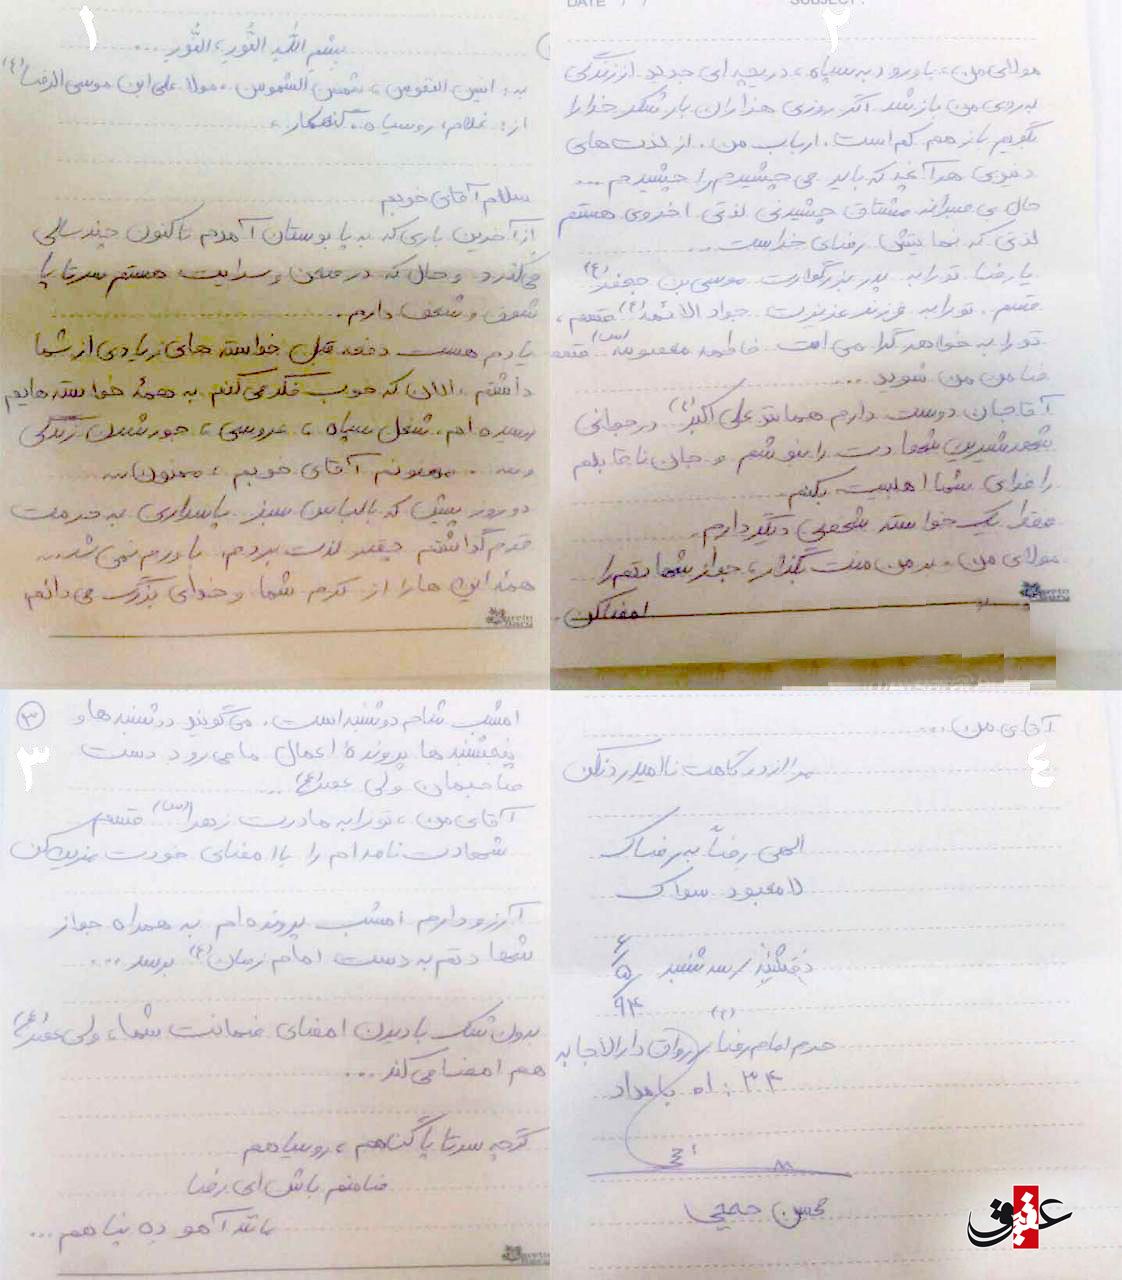 ۱
بسم الله النّور، النّور...
به: انیس النفوس، شمس الشموس، مولا علی ابن موسی الرضا(ع)
از: غلام، روسیاه، گنهکار،
سلام آقای خوبم
از آخرین باری که به پابوستان آمدم تاکنون چند سالی
می‌گذرد. و حال که در صحن و سرایت هستم سر تا پا
شوق و شعف دارم.
یادم هست دفعه قبل خواسته های زیادی از شما
داشتم. الان که خوب فکر می کنم به همهٔ خواسته هایم
رسیده ام. شغل سپاه، عروسی، جور شدن زندگی
و ... ممنونم آقای خوبم، ممنون...
دو روز پیش که با لباس سبز پاسداری به خدمت
قدم گذاشتم چقدر لذت بردم. باورم نمی شد...
همهٔ این ها را از کرم شما و خدای بزرگ می دانم.
۲
DATE / / SUBJECT:
مولای من، با ورود به سپاه، دریچه ای جدید از زندگی
به روی من باز شد. اگر روزی هزاران بار شکر خدا را
بگویم باز هم کم است. ارباب من. از لذت های
دنیوی هر آنچه که باید می چشیدم را چشیدم...
حال بی صبرانه مشتاق چشیدن لذتی اخروی هستم
لذتی که نهایتش رضای خداست...
یا رضا، تو را به پدر بزرگوارت موسی بن جعفر(ع)
قسم. تو را به فرزند عزیزت جواد الائمه(ع) قسم،
تو را به خواهر گرامی ات فاطمه معصومه(س) قسم
ضامن من شوید...
آقا جان دوست دارم همانند علی اکبر(ع) در جوانی
شهد شیرین شهادت را بنوشم و جان ناقابلم
را فدای شما اهلبیت بکنم
فقط یک خواسته شخصی دیگر دارم.
مولای من، بر من منت بگذار، جواز شهادتم را
امضا کن
۳
۳
امشب شام دوشنبه است. می گویند دوشنبه ها و
پنجشنبه ها پروندهٔ اعمال ما می رود دست
صاحبمان ولی عصر(عج)...
آقای من، تو را به مادرت زهرا(س) قسم
شهادت نامه ام را با امضای خودت مزین کن
آرزو دارم امشب پرونده ام به همراه جواز
شهادتم به دست امام زمان(ع) برسد...
بدون شک با دیدن امضای ضمانت شما، ولی عصر(عج)
هم امضا می کند...
گرچه سر تا پا گناهم، روسیاهم
ضامنم باش ای رضا
مانند آهو بی پناهم...
۴
آقای من...
مرا از درگاهت ناامید رد نکن
الهی رضاً به رضاک
لا معبود سواک
سه شنبه
۶
۵
۹۴
حرم امام رضا(ع) رواق دارالاجابه
۳۴ : ۱۵ بامداد
محسن حججی
عقیق